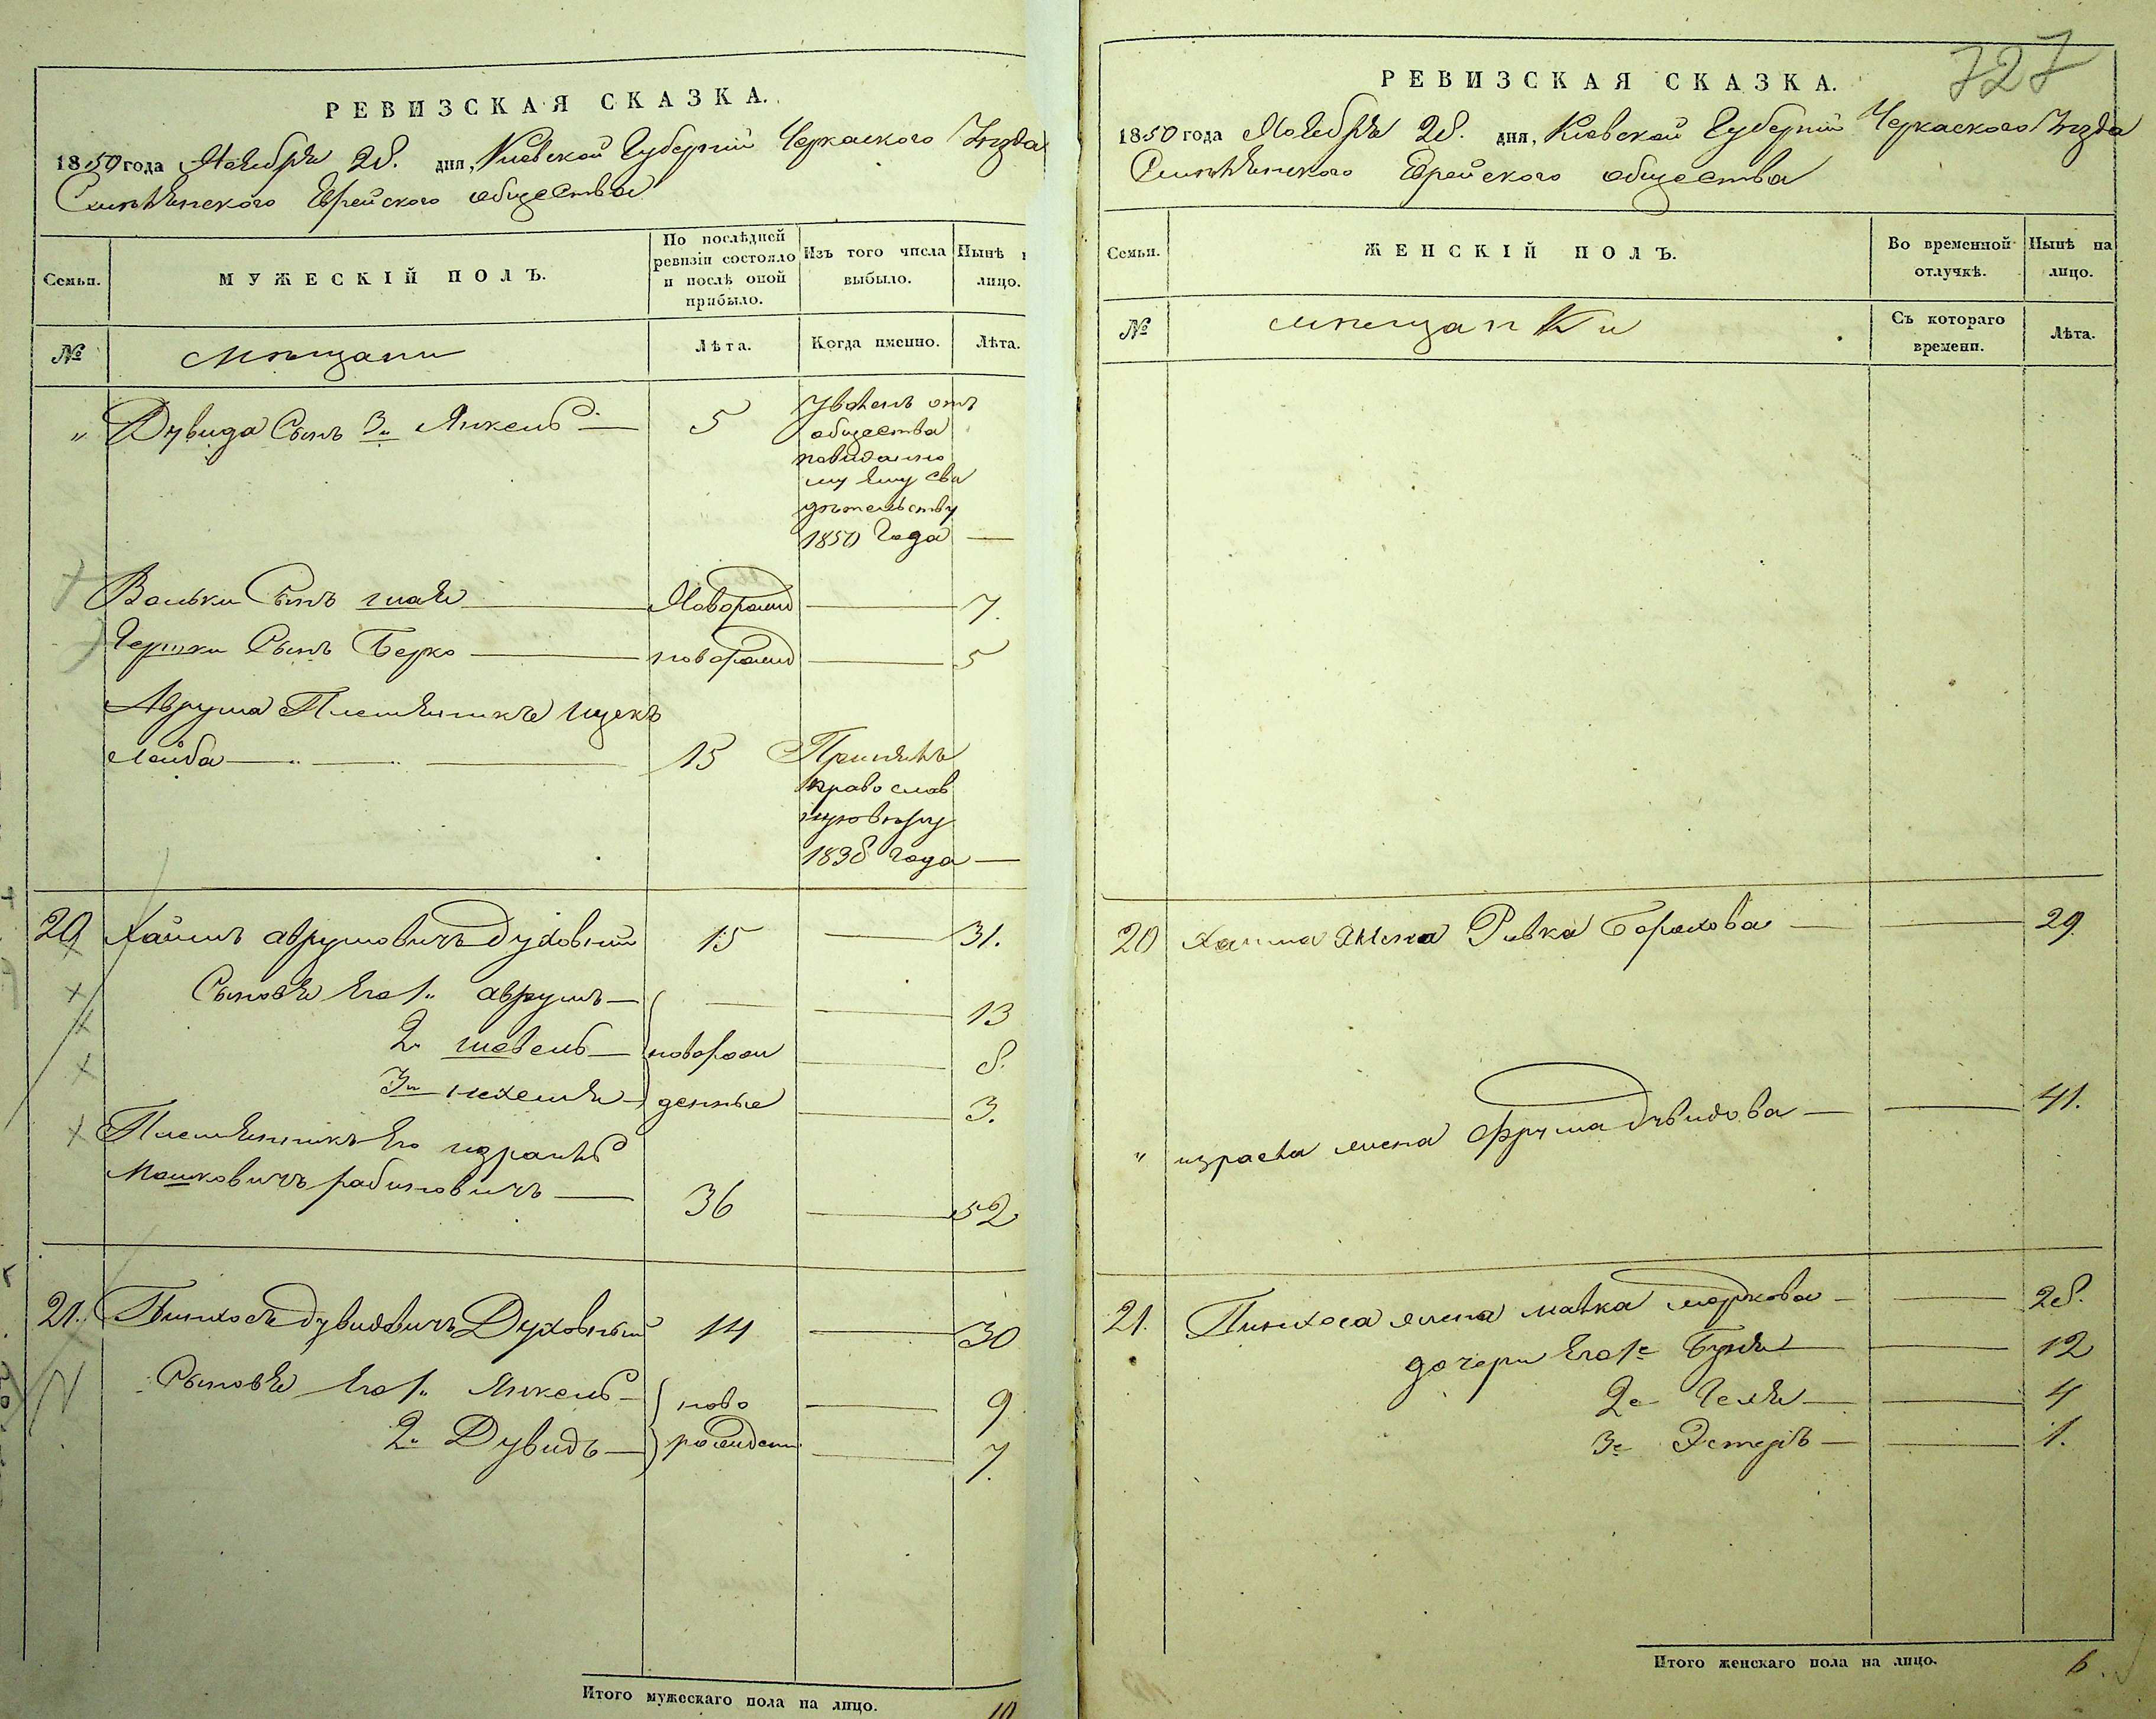 РЕВИЗСКАЯ СКАЗКА.
1850 года Ноября 28. дня, Киевской Губернiи Черкаского Уѣзда
Смѣлянского Еврейского общества
Семьи.
МУЖЕСКIЙ ПОЛЪ.
По послѣдней ревизiи состояло и послѣ оной прибыло.
Изъ того числа выбыло.
Нынѣ
лицо.
№
мѣщани
Лѣта.
Когда именно.
Лѣта.
" Дувида Сынъ 3й Янкель 5
Уволенъ отъ
общества
повиданно
му ему сви
дѣтельству
1850 Года
Вольки Сынъ Новорожд 7.
Гершки Сынъ Берко новорожд 5
Аврума Племянникъ Ицекъ
Лейба 15
Принялъ
православ
ную вѣру
1838 года
20 Хаимъ аврумовичъ Духовный 15 31.
Сыновья Его 1й аврумъ 13
2й шевель новорож 8.
3й нехемя денные 3.
Племянникъ Его израиль
Мошковичъ рабиновичъ 36 52
21. Пинхосъ дувидовичъ Духовный 14 30
Сыновья Его 1й Янкель ново 9
2й Дувидъ рожденн 7.
Итого мужескаго пола на лицо. 10
727
РЕВИЗСКАЯ СКАЗКА.
1850 года Ноября 28. дня, Киевской Губернiи Черкаского Уѣзда
Смѣлянского Еврейского общества
Семьи.
ЖЕНСКIЙ ПОЛЪ.
Во временной отлучкѣ.
Нынѣ на лицо.
№
мѣщанки
Съ котораго времени.
Лѣта.
20 Хаима жена Ривка Борохова 29.
" израеля жена фрума дувидова 41.
21. Пинхоса жена малка моркова 28.
дочери Его 1е Буня 12
2е 4
3е Эстеръ 1.
Итого женскаго пола на лицо. 6.